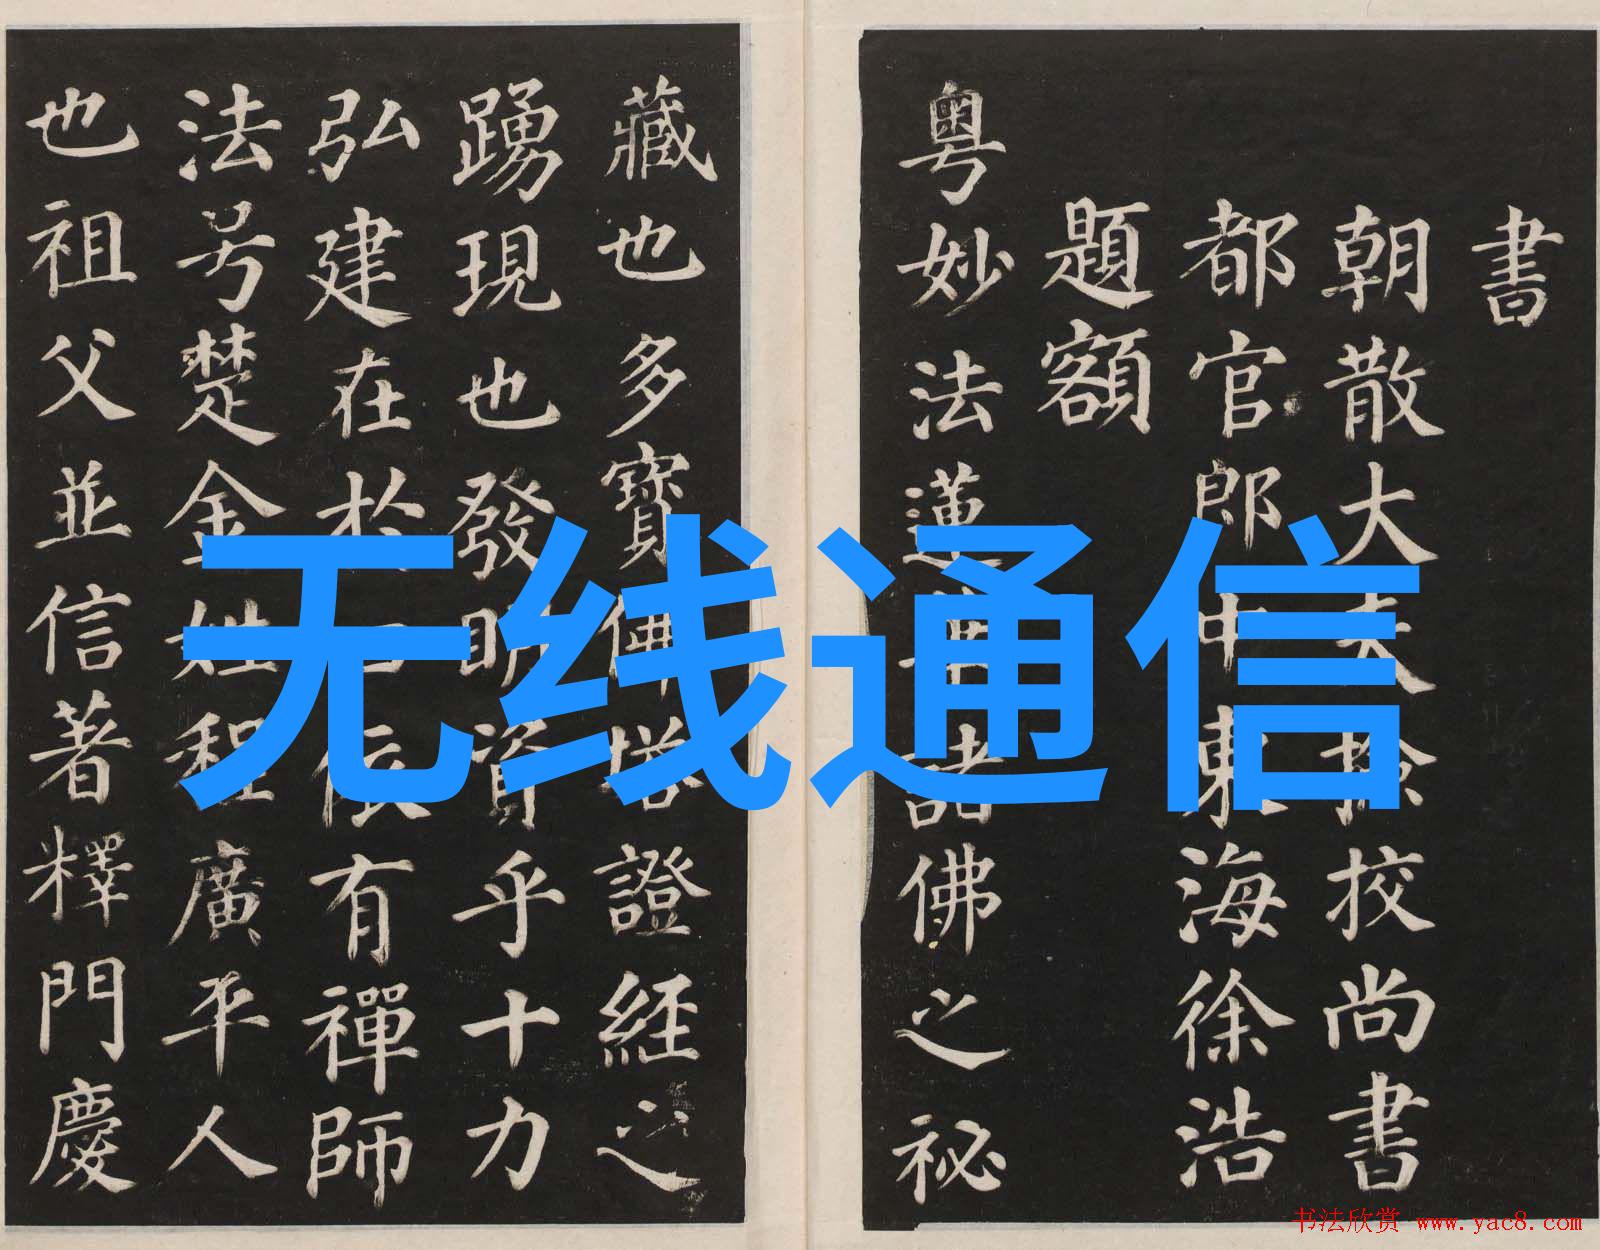 書
朝散大夫撿校尚書
都官郎中東海徐浩
題額
粵妙法蓮華諸佛之祕
藏也多寶佛塔證經之
踴現也發明資乎十力
弘建在於四依有禪師
法号楚金姓程廣平人
也祖父並信著釋門慶
无线通信
书法欣赏 www.yac8.com